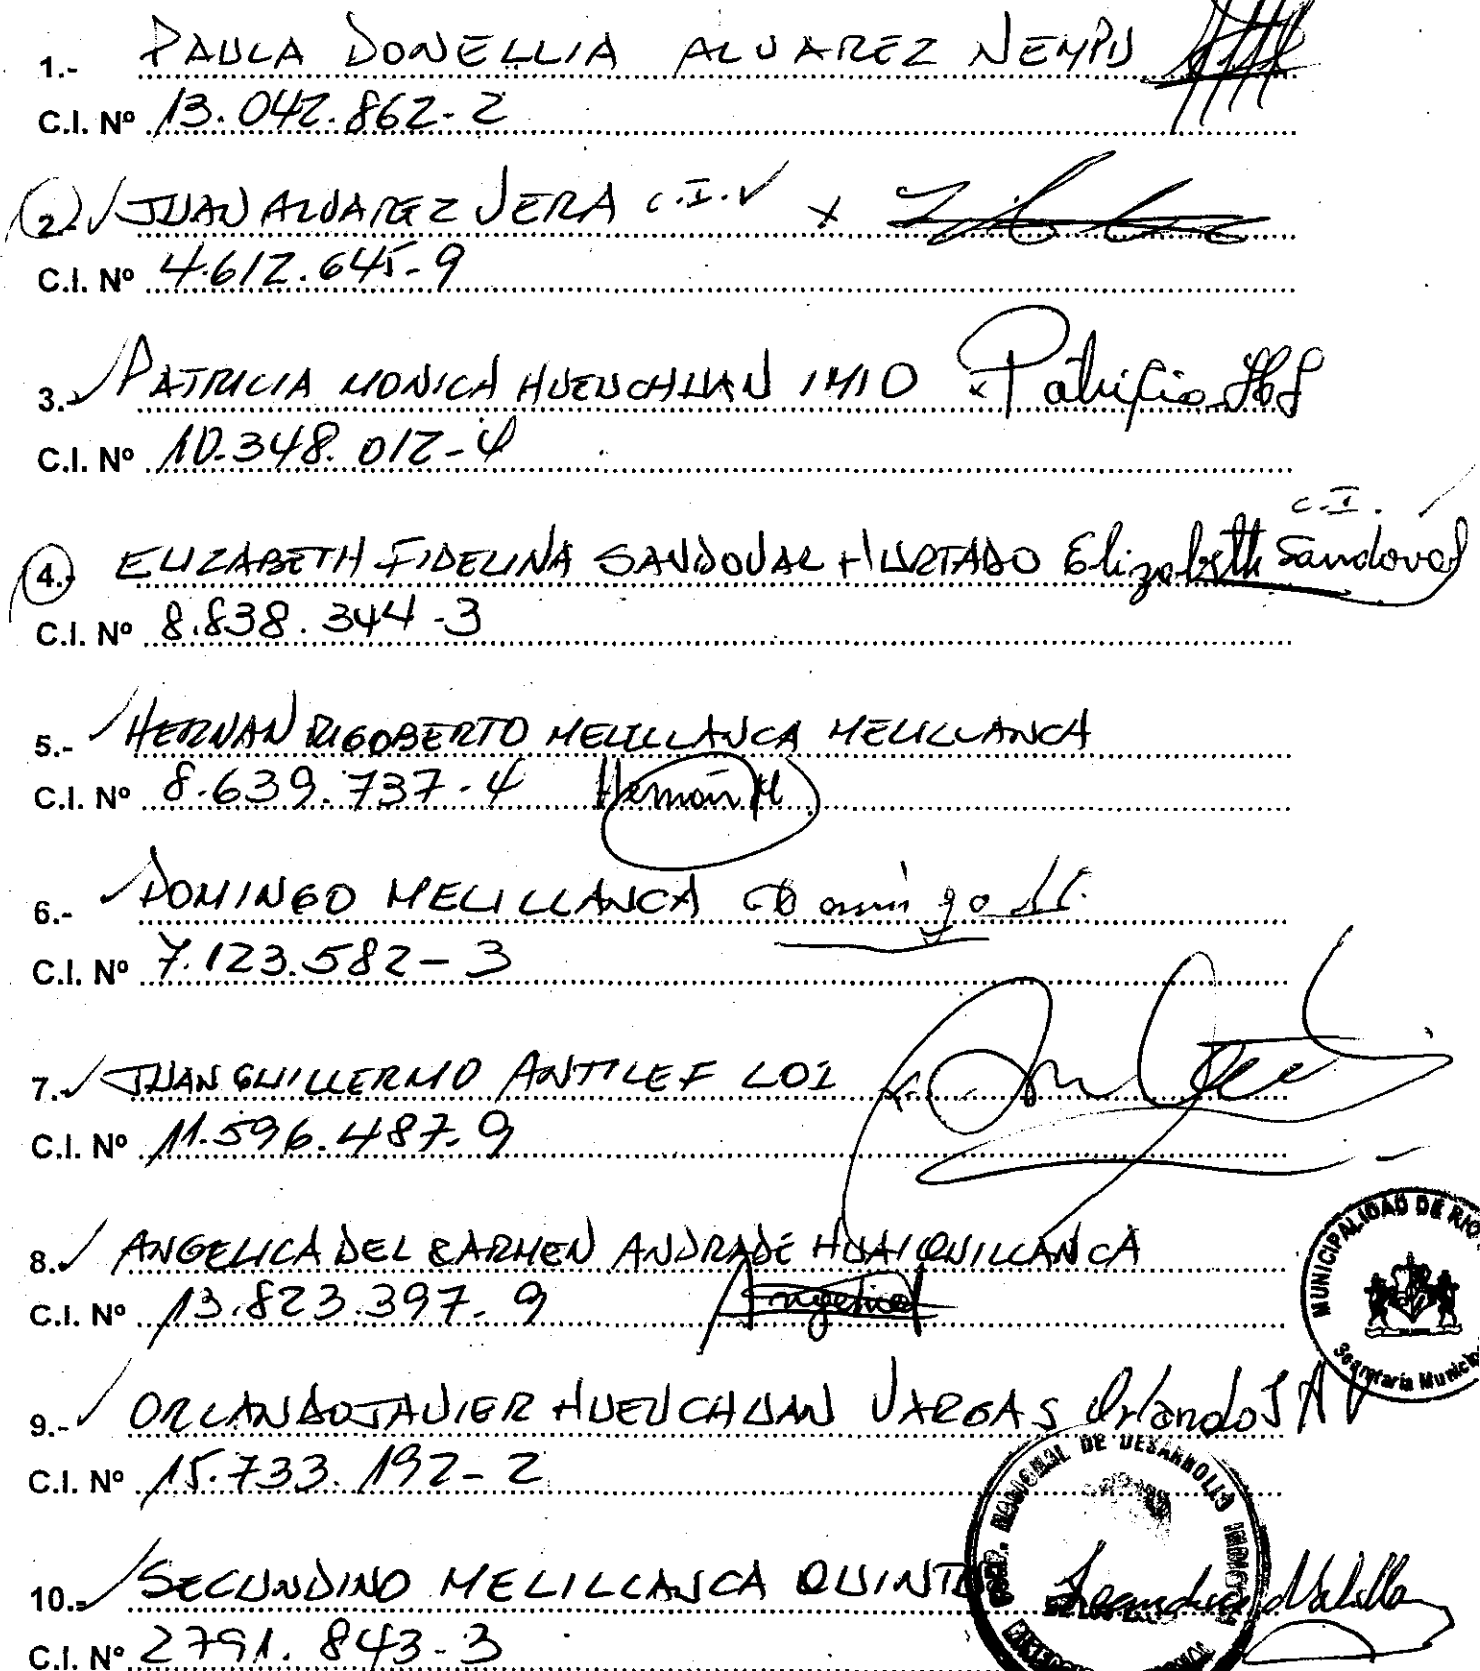 1.- PAULA DONELLIA ALVAREZ NEMPU
C.I. Nº 13.042.862-2
2.- JUAN ALVAREZ VERA C.I. x
C.I. Nº 4.612.645-9
3.- PATRICIA MONICA HUENCHUAN IMIO x Patricia
C.I. Nº 10.348.012-4
C.I.
4.- ELIZABETH FIDELINA SANDOVAL HURTADO Elizabeth Sandoval
C.I. Nº 8.838.344-3
5.- HERNAN RIGOBERTO MELILLANCA MELILLANCA
C.I. Nº 8.639.737-4 Hernán M.
6.- DOMINGO MELILLANCA Domingo M.
C.I. Nº 7.123.582-3
7.- JUAN GUILLERMO ANTILEF LOI
C.I. Nº 11.596.487-9
8.- ANGELICA DEL CARMEN ANDRADE HUAIQUILLANCA
C.I. Nº 13.823.397-9 Angelica
MUNICIPALIDAD DE RIO
Secretaria Municipal
9.- ORLANDO JAVIER HUENCHUAN VARGAS Orlando J
C.I. Nº 15.733.192-2
NACIONAL DE DESARROLLO INDIGENA
10.- SECUNDINO MELILLANCA QUINTO
C.I. Nº 2791.843-3